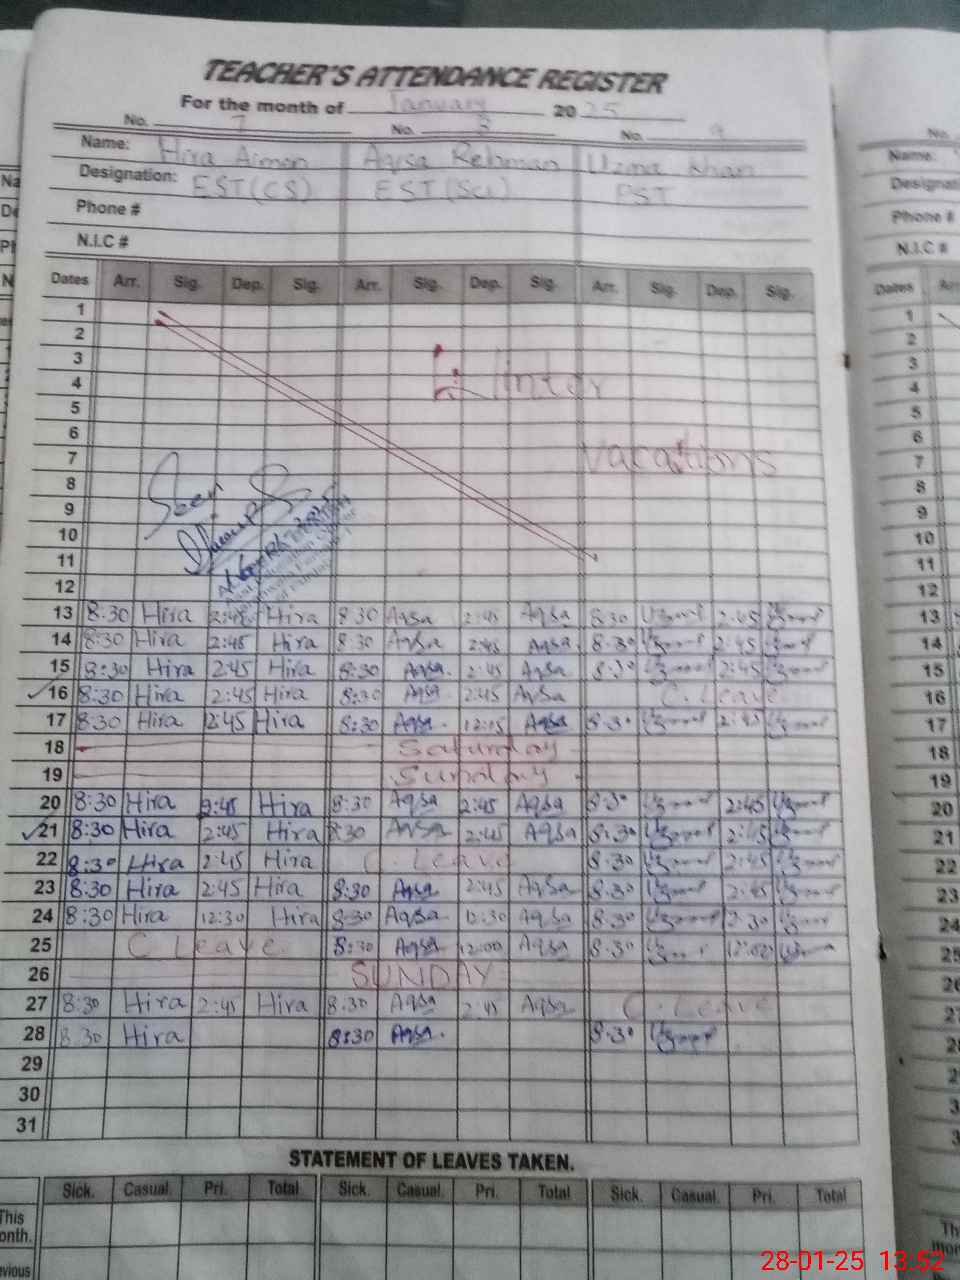 TEACHER'S ATTENDANCE REGISTER
For the month of January 2025
No. 7 No. No. 9
Name: Hira Aimon Aqsa Rehman Uzma Khan
Designation: EST(CS) EST(Sci) PST
Phone #
N.I.C #
Dates Arr. Sig. Dep. Sig. Arr. Sig. Dep. Sig. Arr. Sig. Dep. Sig.
1
2
3
4 Winter
5
6
7 Vacations
8 Seen
9
10
11
12
13 8:30 Hira 2:45 Hira 8:30 Aqsa 2:45 Aqsa 8:30 2:45
14 8:30 Hira 2:45 Hira 8:30 Aqsa 2:45 Aqsa. 8:30 2:45
15 8:30 Hira 2:45 Hira 8:30 Aqsa. 2:45 Aqsa 8:30 2:45
16 8:30 Hira 2:45 Hira 8:30 Aqsa 2:45 Aqsa C. Leave
17 8:30 Hira 2:45 Hira 8:30 Aqsa. Aqsa 8:30 2:45
18 Saturday
19 Sunday
20 8:30 Hira 2:45 Hira 8:30 Aqsa 2:45 Aqsa 8:30 2:45
21 8:30 Hira 2:45 Hira 8:30 Aqsa 2:45 Aqsa 8:30 2:45
22 8:30 Hira 2:45 Hira C. Leave 8:30 2:45
23 8:30 Hira 2:45 Hira 8:30 Aqsa 2:45 Aqsa 8:30 2:45
24 8:30 Hira 12:30 Hira 8:30 Aqsa 12:30 Aqsa 8:30
25 C Leave 8:30 Aqsa 12:00 Aqsa 8:30 12:00
26 SUNDAY
27 8:30 Hira 2:45 Hira 8:30 Aqsa 2:45 Aqsa C. Leave
28 8:30 Hira 8:30 Aqsa. 8:30
29
30
31
STATEMENT OF LEAVES TAKEN.
Sick. Casual. Pri. Total Sick. Casual. Pri. Total Sick. Casual. Pri. Total
This
28-01-25 13:52